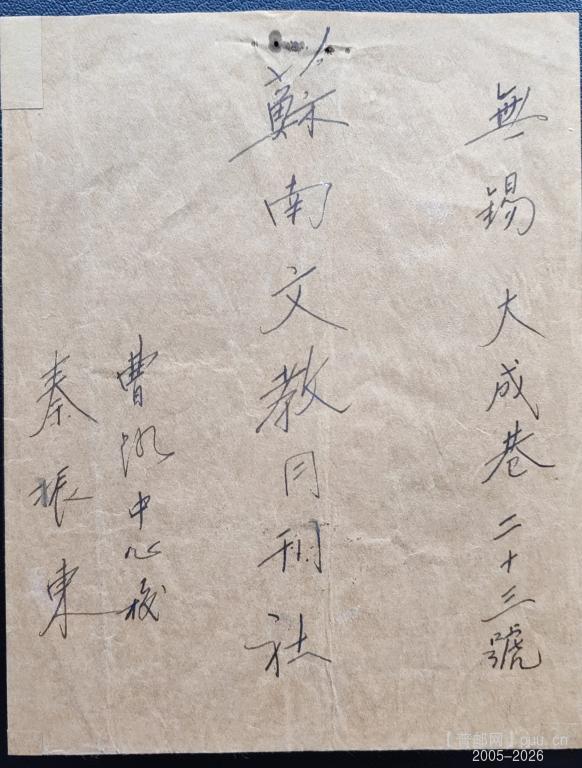 無錫大成巷二十三號
蘇南文教月刊社
曹泓中心校
秦振東
【普邮网】puu.cn
2005-2026